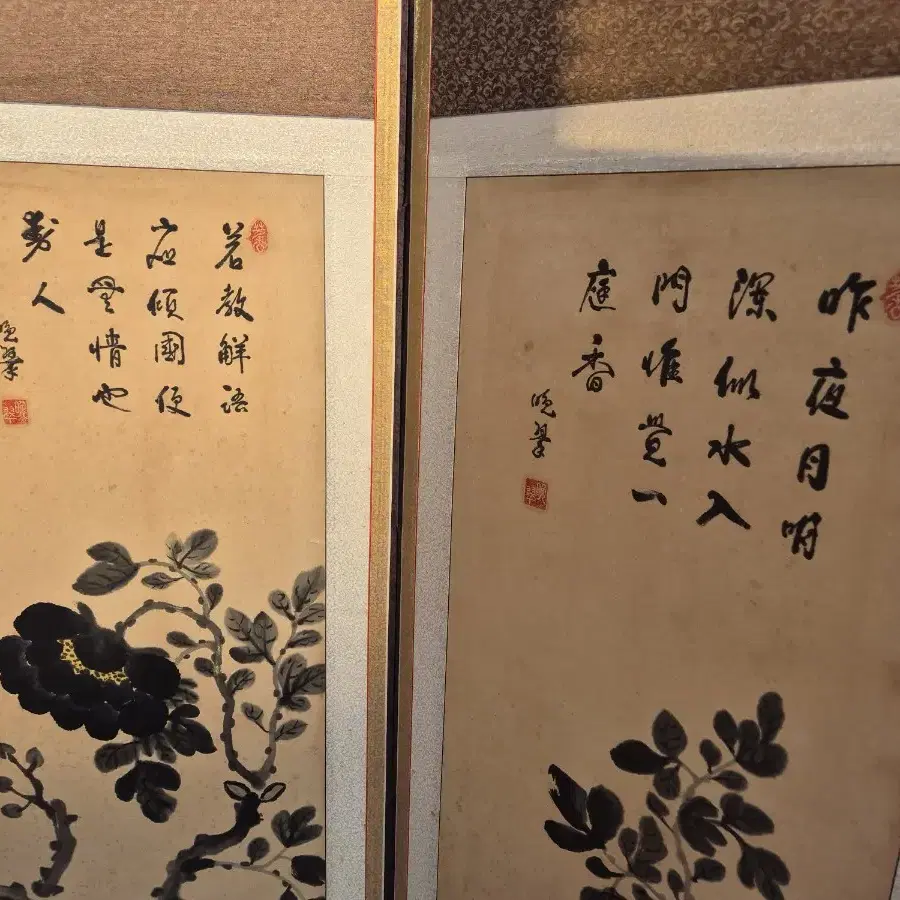 昨夜月明
深似水入
門惟覺一
庭香
晩翠
若教解語
應傾國便
是無情也
動人
晩翠